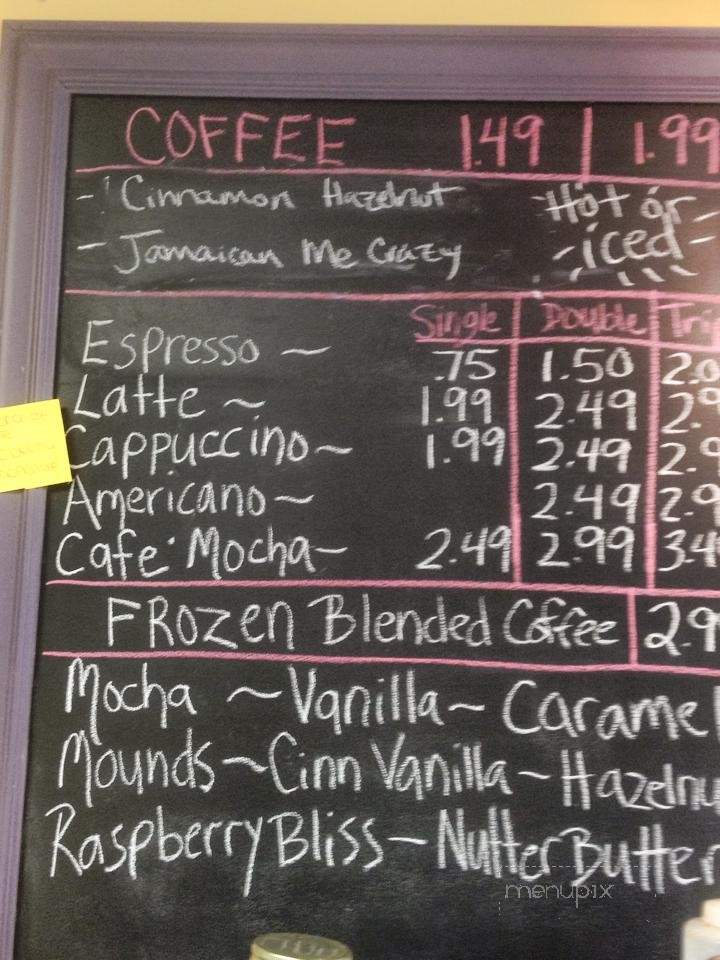 COFFEE 1.49 | 1.99
- Cinnamon Hazelnut
- Jamaican Me Crazy
Hot or
- iced -
Single Double
Espresso ~ .75 1.50
Latte ~ 1.99 2.49
Cappuccino ~ 1.99 2.49
Americano ~ 2.49
Cafe Mocha - 2.49 2.99
FROZEN Blended Coffee
Mocha ~ Vanilla ~ Caramel
Mounds ~ Cinn Vanilla ~
Raspberry Bliss - Nutter Butter
menupix